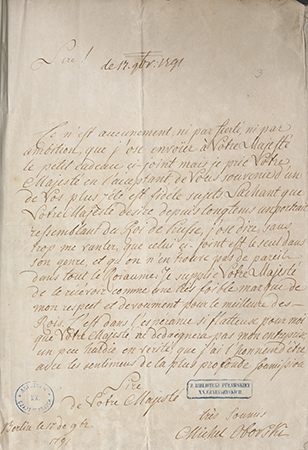 Sire!
de 17. 9br. 1791
3
Ce n'est aucunement, ni par fierté, ni par
ambition, que j'ose envoïer à Votre Majesté
le petit cadeau ci-joint mais je prie Votre
Majesté en l'acceptant de Vous souvenir d'un
de Vos plus zélé et fidele sujets. Sachant que
Votre Majesté desire depuis longtems un portrait
ressemblant du Roi de Prusse, j'ose dire, sans
trop me vanter, que celui ci-joint est le seul dans
son genre, et qu'on n'en trouve pas de pareil
dans tout le Roïaume. Je supplie Votre Majesté
de le recevoir comme une très foible marque de
mon respect et devoument pour le meilleure des
Rois. C'est dans l'esperance si flatteuse pour moi
que Votre Majesté ne dedaignera pas mon entreprise
un peu hardie en verité, que j'ai l'honneur d'être
avec les sentimens de la plus profonde soumission
Sire
de Votre Majesté
Berlin le 17 de 9br
1791
très soumis
Michel Oborski
Z BIBLIOTEKI PUŁAWSKIEJ
XX. CZARTORYSKICH